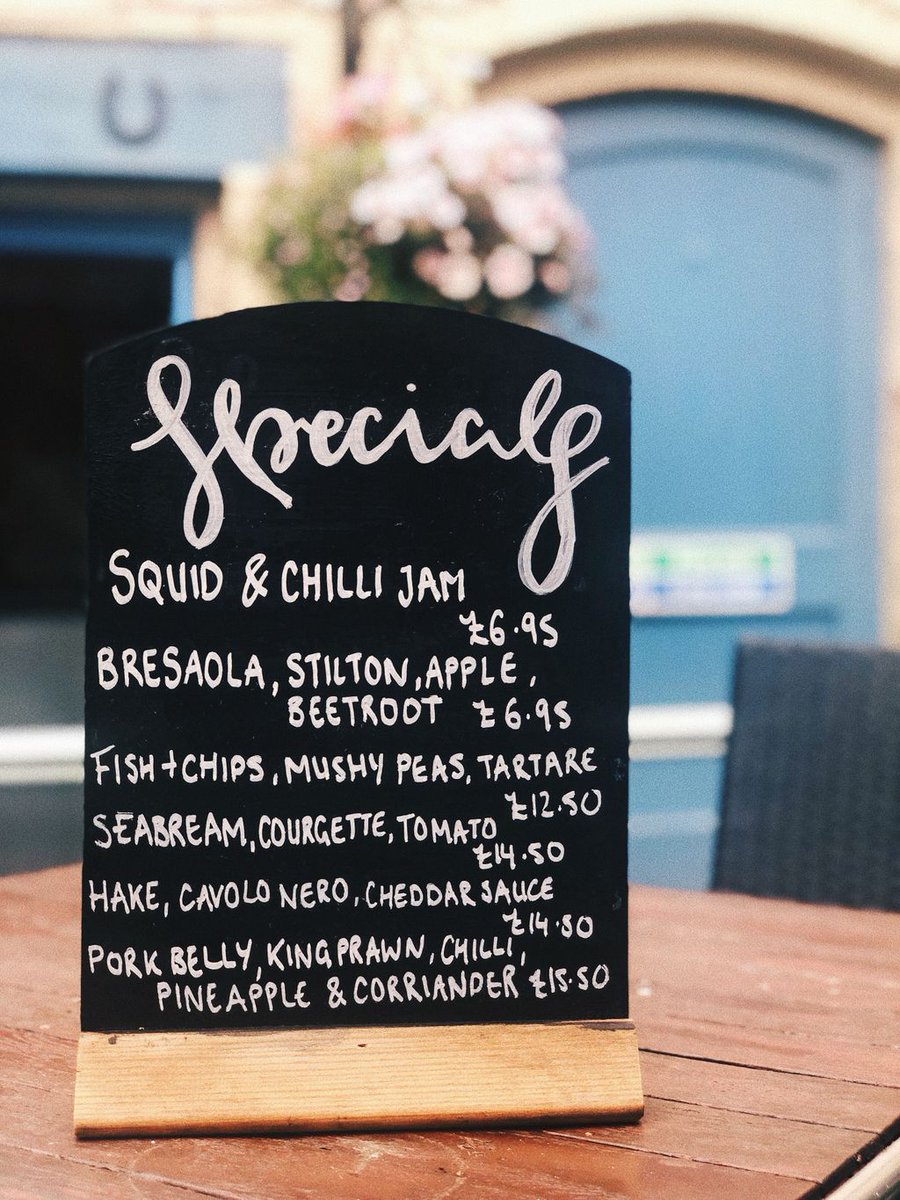 Specials
SQUID & CHILLI JAM
£6.95
BRESAOLA, STILTON, APPLE,
BEETROOT £6.95
FISH + CHIPS, MUSHY PEAS, TARTARE
£12.50
SEABREAM, COURGETTE, TOMATO
£14.50
HAKE, CAVOLO NERO, CHEDDAR SAUCE
£14.50
PORK BELLY, KING PRAWN, CHILLI,
PINEAPPLE & CORRIANDER £15.50